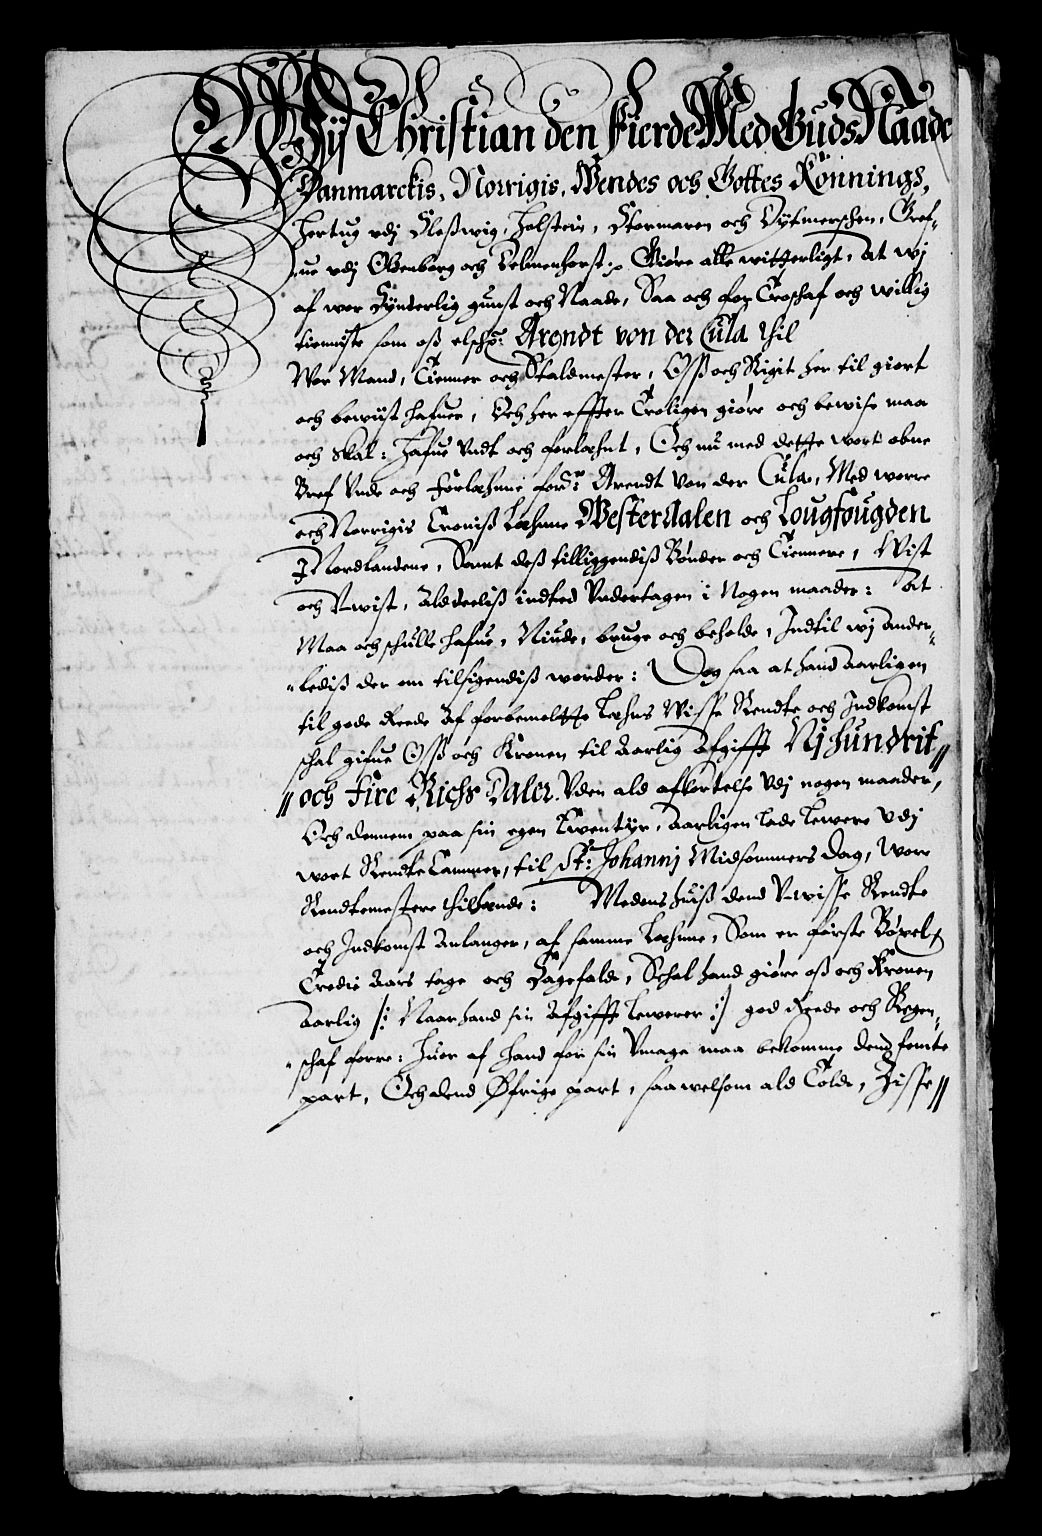 Wij Christian den Fierde Med Guds Naade
Danmarckis, Norrigis, Wendes och Gottes Konnings,
Hertug vdj Sleßwig, Holstein, Stormaren och Dytmerschen, Gref-
-ue vdj Oldenborg och Delmenhorst, Giøre alle witterligt, At wj
af wor Synderlig gunst och Naade, Saa och for Troschaf och willig
tienniste som oß elsche: Arendt von der Cula thil
Wor Mand, Tienner och Staldmester, Oß och Rigit her til giort
och bewiist hafuer, Och her effter Troligen giøre och bewise maa
och skal: Hafue Vndt och forlehnt, Och nu med dette wort obne
Bref Vnde och forlehne forne: Arendt Von der Cula, Med worre
och Norrigis Croniß Lehnne Westerdalen och Lougfougden
J Nordlandene, Samt deß tilliggendiß Bønder och Tiennere, Wist
och V-wist, Aldeeliß indted Vndertagen i Nogen maader: At
Maa och schulle hafue, Niude, bruge och beholde, Indtil wj Ander-
-lediß der om tilsigendiß worder: Dog saa at hand Aarligen
til gode Reede Af forbemeltte Lehns Wisse Rendte och Indkomst
schal gifue Oß och Kronen til Aarlig Afgifft Nj hundrit
och fire Richs Daler. Vden ald afkortelse Vdj nogen maader,
Och dennem paa sin egen Ewentyr, Aarligen lade Lewere Vdj
wort RendteCammer, til St: Johannj Midsommers Dag, Wore
Rendtemestere thilhende: Medens huiß dend V-wisse Rendte
och Indkomst Anlanger, af samme Lehnne, Som er første Bøxel
Tredie Aars tage och Sagefald, Schal hand giøre oß och Kronen
Aarlig /: Naar hand sin Afgifft Lewerer :/ god Reede och Regen-
-schaf forre: Huor af hand for sin Vmage maa bekomme dend femte
part, Och dend Øfrige part, saawelsom ald Told, Zisse